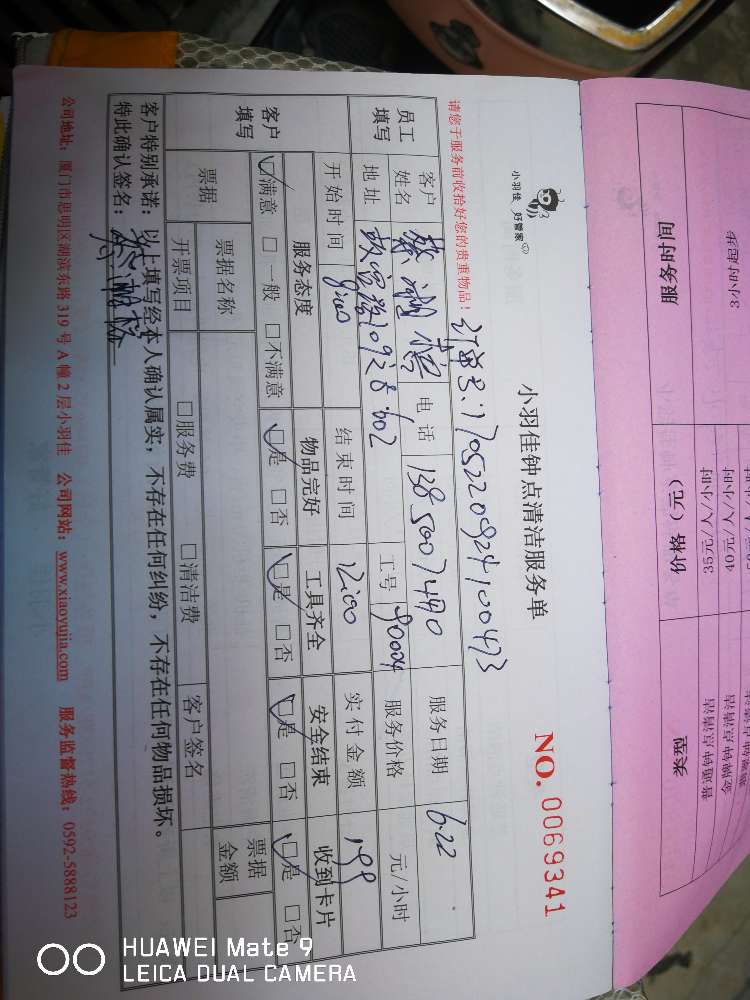 小羽佳 好管家
小羽佳钟点清洁服务单
NO. 0069341
请您于服务前收拾好您的贵重物品！
订单号:1705220924100473
员工填写
客户姓名
电话 13850074490
服务日期 6.22
地址
工号 90004
服务价格 元/小时
开始时间 9:00
结束时间 12:00
实付金额 199
客户填写
服务态度 物品完好 工具齐全 安全结束 收到卡片
☑满意 □一般 □不满意 ☑是 □否 ☑是 □否 ☑是 □否 ☑是 □否
票据
票据名称
票据金额
开票项目 □服务费 □清洁费 客户签名
客户特别承诺：以上填写经本人确认属实，不存在任何纠纷，不存在任何物品损坏。
特此确认签名：
公司地址：厦门市思明区湖滨东路 319 号 A 幢 2 层小羽佳 公司网站：www.xiaoyujia.com 服务监督热线：0592-5888123
服务时间 价格（元） 类型
3小时起步
35元/人/小时
40元/人/小时
HUAWEI Mate 9
LEICA DUAL CAMERA